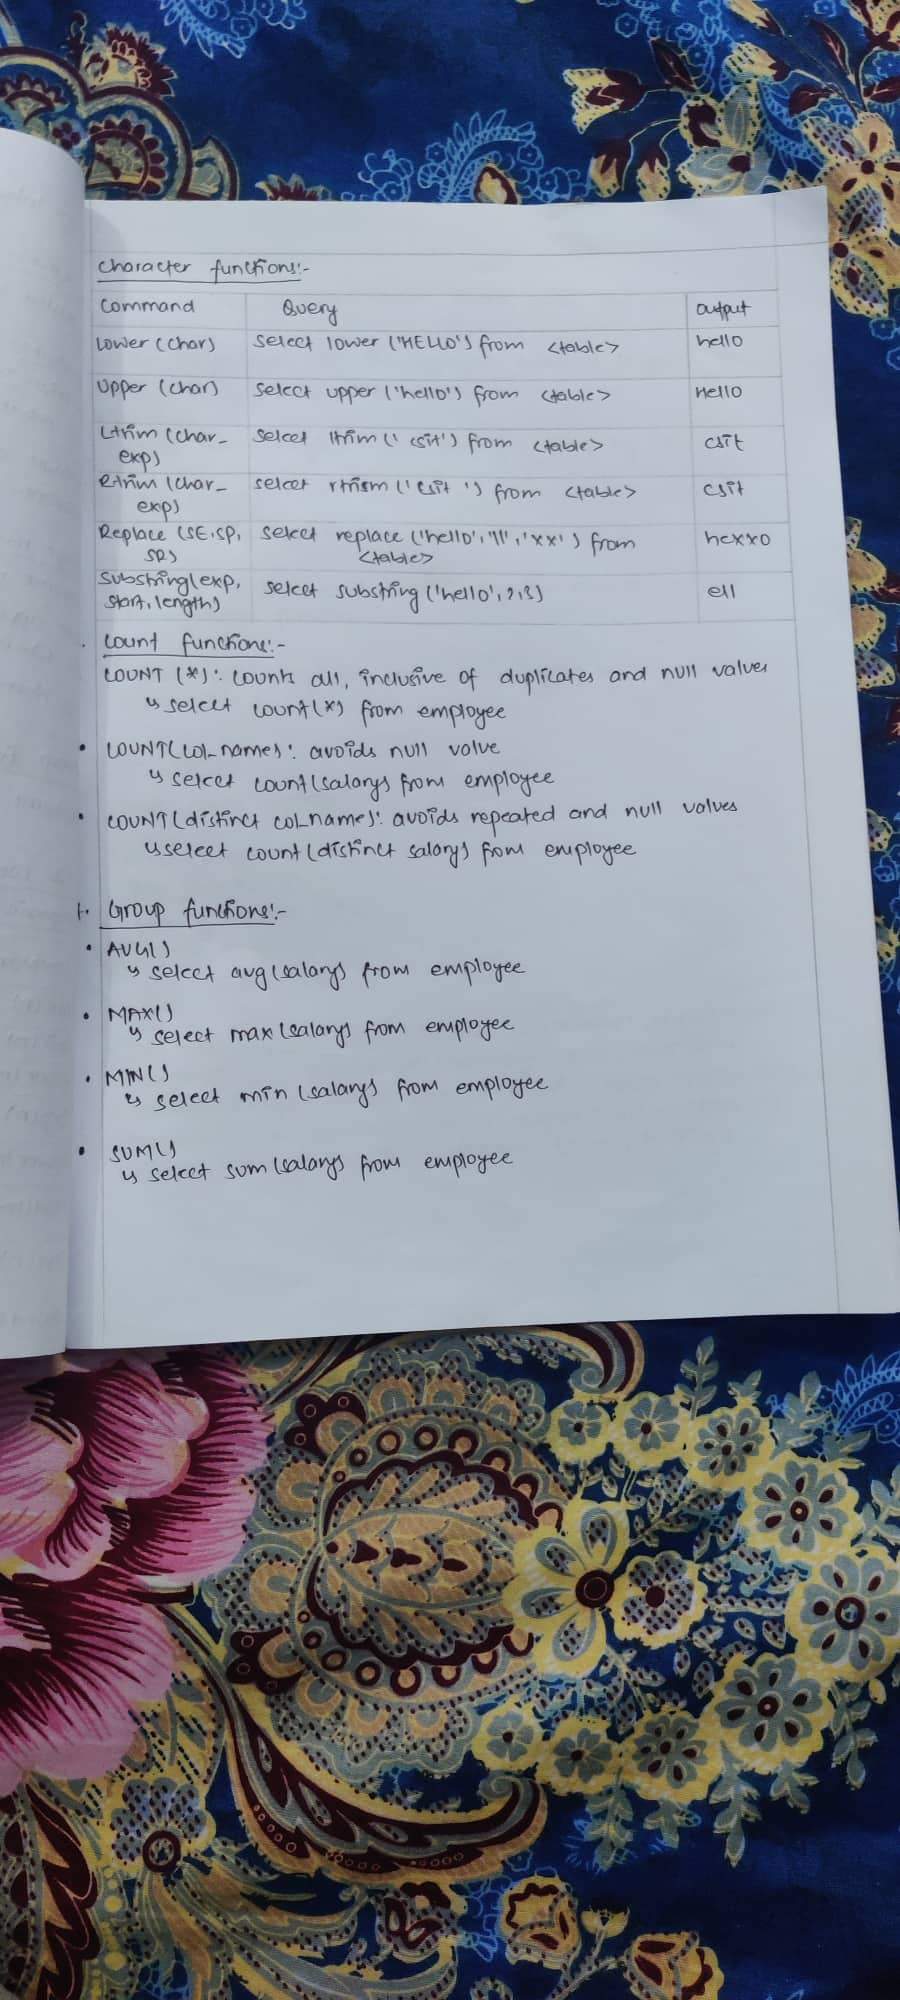 Character functions:-
Command Query output
Lower (char) select lower ('HELLO') from <table> hello
Upper (char) select upper ('hello') from <table> Hello
Ltrim (char_ select ltrim (' csit') from <table> csit
exp)
Rtrim (char_ select rtrism ('csit ') from <table> csit
exp)
Replace (SE, SP, select replace ('hello', 'll', 'xx') from hexxo
SR) <table>
Substring(exp, select substring ('hello', 2,3) ell
start, length)
Count functions:-
COUNT (*): counts all, inclusive of duplicates and null values
↳ select count(*) from employee
• COUNT(col_name): avoids null value
↳ select count(salary) from employee
• COUNT(distinct col_name): avoids repeated and null values
↳ select count(distinct salary) from employee
Group functions:-
• AVG()
↳ select avg(salary) from employee
• MAX()
↳ select max(salary) from employee
• MIN()
↳ select min (salary) from employee
• SUM()
↳ select sum(salary) from employee